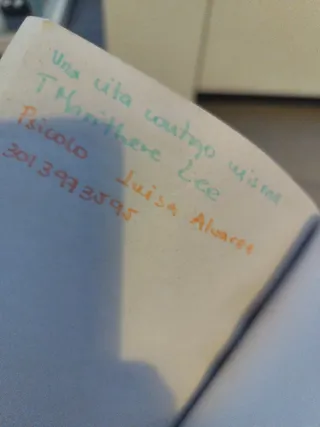 Una cita contigo misma
Lee
Psicolo Luisa Alvarez
3013973595